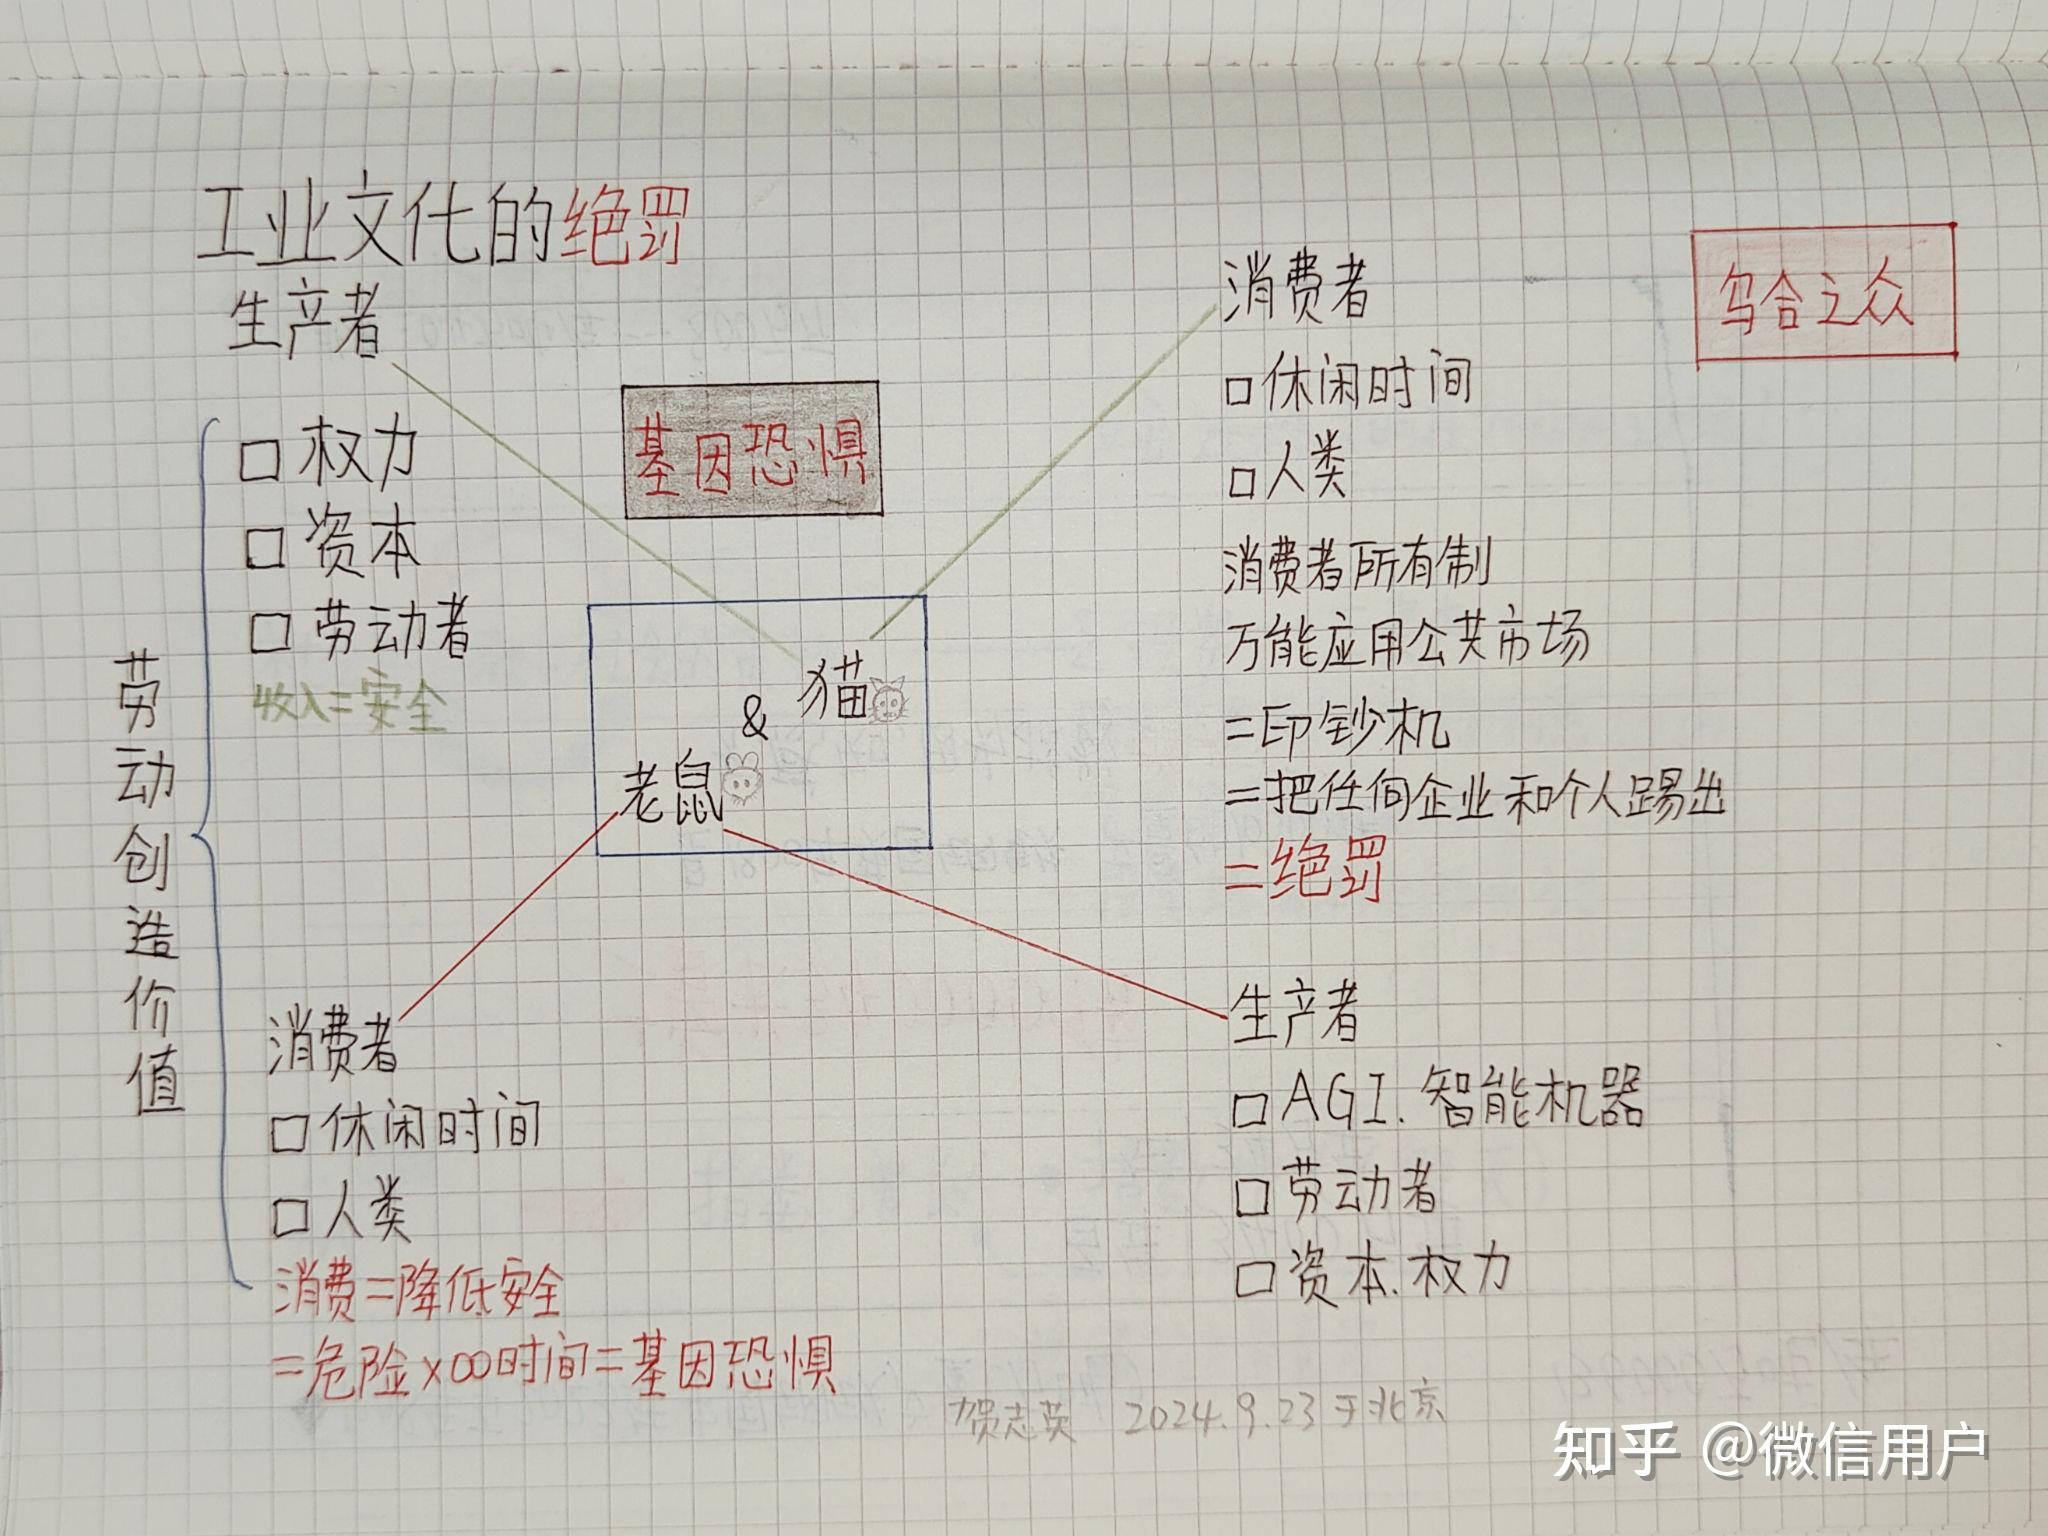 工业文化的绝罚
生产者
□权力
□资本
□劳动者
收入=安全
劳动创造价值
消费者
□休闲时间
□人类
消费=降低安全
=危险×∞时间=基因恐惧
基因恐惧
猫
&
老鼠
消费者
□休闲时间
□人类
消费者所有制
万能应用公共市场
=印钞机
=把任何企业和个人踢出
=绝罚
乌合之众
生产者
□AGI.智能机器
□劳动者
□资本.权力
贺志英 2024.9.23于北京
知乎 @微信用户